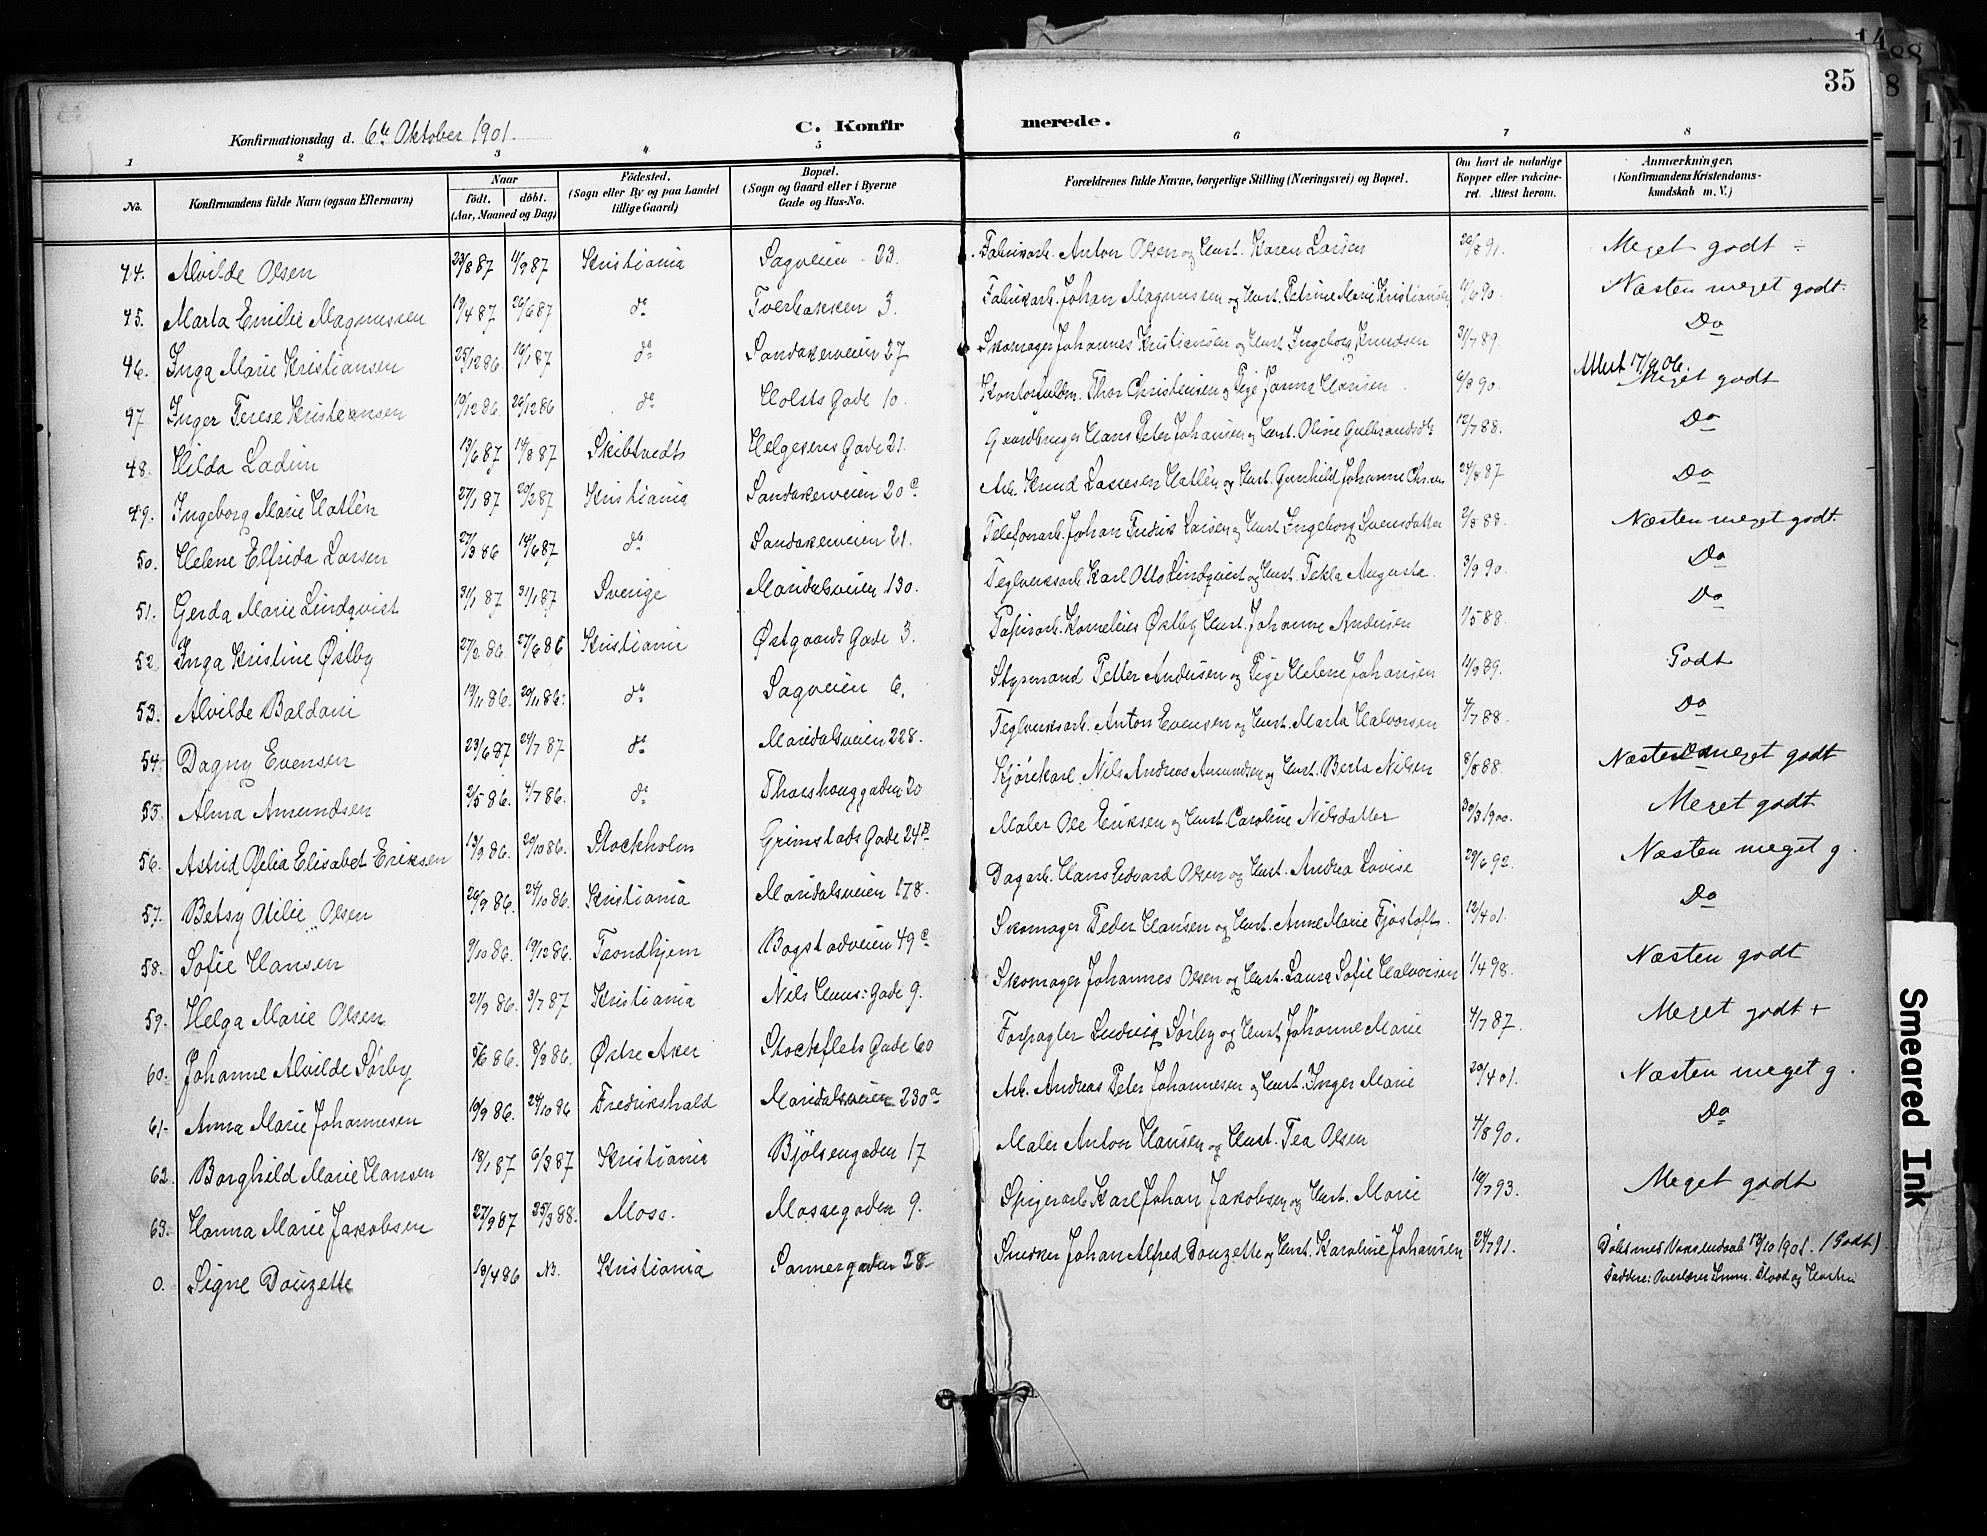 35
Konfirmationsdag d. 6te Oktober 1901.
C. Konfirmerede.
1 2 3 4 5 6 7 8
No. Konfirmandens fulde Navn (ogsaa Efternavn) Naar födt. döbt. (Aar, Maaned og Dag) Födested. (Sogn eller By og paa Landet tillige Gaard) Bopæl. (Sogn og Gaard eller i Byerne Gade og Hus-No. Forældrenes fulde Navne, borgerlige Stilling (Næringsvei) og Bopæl. Om havt de naturlige Kopper eller vakcineret. Attest herom. Anmærkninger. (Konfirmandens Kristendomskundskab m. V.)
44. Alvilde Olsen 23/8 87 11/9 87 Kristiania Sagveien 23. Fabrikarb. Anton Olsen og Hust. Karen Larsen 26/8 91. Meget godt ÷
45. Marta Emilie Magnussen 19/4 87 26/6 87 do Tverbakken 3. Fabrikarb. Johan Magnussen og Hust. Petrine Marie Kristiansen 11/6 90. Næsten meget godt.
46. Inga Marie Kristiansen 25/12 86. 19/1 87 do Sandakerveien 27 Skomager Johannes Kristiansen og Hust. Ingeborg Knudsen 31/7 89. Do
47 Inger Terese Kristiansen 10/12 86. 26/12 86 do Holsts Gade 10. Kontorfuldm. Thor Christensen og Pige Janna Hansen. 6/8 90. Attest 17/9 06. Meget godt
48. Hilda Ladim 13/6 87 14/8 87 Skibtvedt Helgesens Gade 21. Gaardbruger Hans Peter Johansen og Hust. Oline Gulbrandsdtr 12/7 88. Do
49. Ingeborg Marie Hatlén 27/1 87 20/2 87 Kristiania Sandakerveien 20 c. Arb. Knud Lassesen Hatlén og Hust. Gunhild Johanne 24/8 87 Do
50. Helene Elfrida Larsen 27/3 86 19/6 87 do Sandakerveien 21. Telefonarb. Johan Fredrik Larsen og Hust. Ingeborg Svensdatter 2/8 88. Næsten meget godt.
51. Gerda Marie Lindqvist 31/1 87 31/1 87 Sverige Maridalsveien 130. Teglverksarb. Karl Otto Lindqvist og Hust. Tekla Augusta. 3/9 90. Do
52. Inga Kristine Østby 27/2 86. 27/6 86 Kristiania Østgaards Gade 3. Papirarb. Kornelius Østby Hust. Johanne Andersen 1/5 88. Do
53. Alvilde Baldani 19/11 86. 20/11 86. do Sagveien 6. Styrmand Petter Andersen og Pige Helene Johansen 14/9 89. Godt
54. Dagny Evensen 23/6 87 24/7 87 do Maridalsveien 228. Teglverksarb. Anton Evensen og Hust. Marta Halvorsen 4/7 88. Do
55. Alma Amundsen 2/5 86. 4/7 86. do Thorshauggaden 20 Kjørekarl Nils Andreas Amundsen og Hust. Berta Nilsen 8/8 88. Næsten meget godt
56. Astrid Ofelia Elisabet Eriksen 13/9 86. 20/10 86. Stockholm Grimstads Gade 24 B Maler Ole Eriksen og Hust. Caroline Nilsdatter 30/3 1900. Meget godt
57. Betsy Otilie Olsen 20/9 86. 24/10 86. Kristiania Maridalsveien 178. Dagarb. Hans Edvard Olsen og Hust. Andrea Lovise 29/6 92. Næsten meget g.
58. Sofie Hansen 9/10 86. 19/12 86. Trondhjem Bogstadveien 49 c. Skomager Peder Hansen og Hust. Anne Marie Fjøstoft. 12/4 01. Do
59. Helga Marie Olsen 21/9 86. 3/7 87 Kristiania Nils Huus: Gade 9. Skomager Johannes Olsen og Hust. Laura Sofie Halvorsen 1/4 98. Næsten godt
60. Johanne Alvilde Sørby 5/6 86. 8/8 86. Østre Aker Stockflets Gade 60 Forpagter Ludvig Sørby og Hust. Johanne Marie 4/7 87. Meget godt +
61. Anna Marie Johannesen 19/9 86. 24/10 86 Fredrikshald Maridalsveien 230 a Arb. Andreas Peter Johannesen og Hust. Inger Marie 20/4 01. Næsten meget g.
62. Borghild Marie Hansen 18/1 87 6/3 87 Kristiania Bjølsengaden 17 Maler Anton Hansen og Hust. Tea Olsen 4/8 90. Do
63. Hanna Marie Jakobsen 27/9 87 25/3 88. Moss. Mossegaden 9. Spigerarb. Karl Johan Jakobsen og Hust. Marie 10/7 93. Meget godt
0. Signe Douzette 19/4 86 NB. Kristiania Sannergaden 28 Snedker Johan Alfred Douzette og Hust. Karoline Johansen 24/7 91. Døbt med 13/10 1901. (Godt)
Faddere: Overlærer og Hustru
Smeared Ink